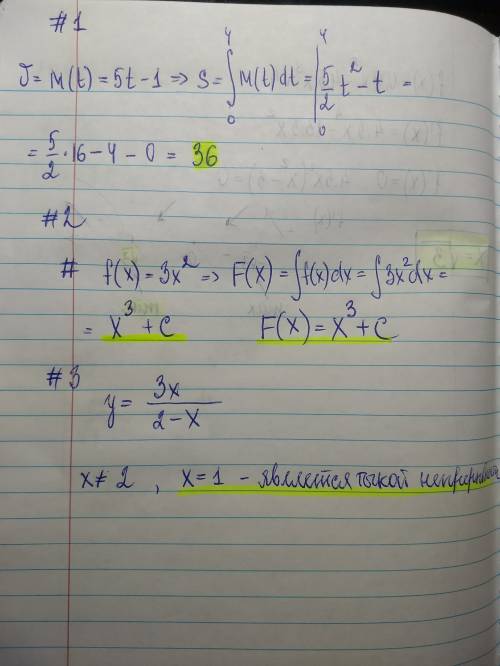 #1
V = M(t) = 5t-1 => S = ∫₀⁴ M(t)dt = |₀⁴ 5/2 t² - t =
= 5/2 · 16 - 4 - 0 = 36
#2
# f(x) = 3x² => F(x) = ∫f(x)dx = ∫3x²dx =
= x³ + C F(x) = x³ + C
#3
y = 3x / 2-x
x ≠ 2 , x = 1 - является точкой